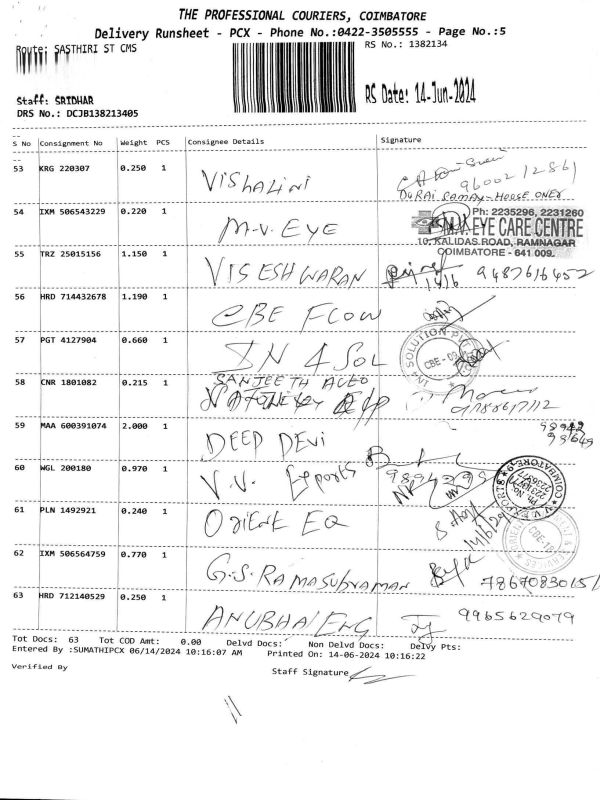 THE PROFESSIONAL COURIERS, COIMBATORE
Delivery Runsheet - PCX - Phone No.:0422-3505555 - Page No.:5
Route: SASTHIRI ST CMS
RS No.: 1382134
RS Date: 14-Jun-2024
Staff: SRIDHAR
DRS No.: DCJB138213405
S No Consignment No Weight PCS Consignee Details Signature
53 KRG 220307 0.250 1 VISHALINI 9600212861
DURAI SAMAY-HOUSE ONER
54 IXM 506543229 0.220 1 M.V. EYE
Ph: 2235296, 2231260
M.V. EYE CARE CENTRE
10, KALIDAS ROAD, RAMNAGAR
COIMBATORE - 641 009.
55 TRZ 25015156 1.150 1 VISESHWARAN 14/6 9487616452
56 HRD 714432678 1.190 1 CBE FLOW
57 PGT 4127904 0.660 1 IN 4 SOL
IN4SOLUTION PVT
CBE - 09
58 CNR 1801082 0.215 1 SANJEETH AUTO
59 MAA 600391074 2.000 1 DEEP DEVI
60 WGL 200180 0.970 1 V.V. Exports
V.V. EXPORTS
COIMBATORE-9
61 PLN 1492921 0.240 1 ORIENT EQ
62 IXM 506564759 0.770 1 G.S. RAMASUBRAMAN
63 HRD 712140529 0.250 1 ANUBHAI ENG 9965629079
Tot Docs: 63 Tot COD Amt: 0.00 Delvd Docs: Non Delvd Docs: Delvy Pts:
Entered By :SUMATHIPCX 06/14/2024 10:16:07 AM Printed On: 14-06-2024 10:16:22
Verified By Staff Signature